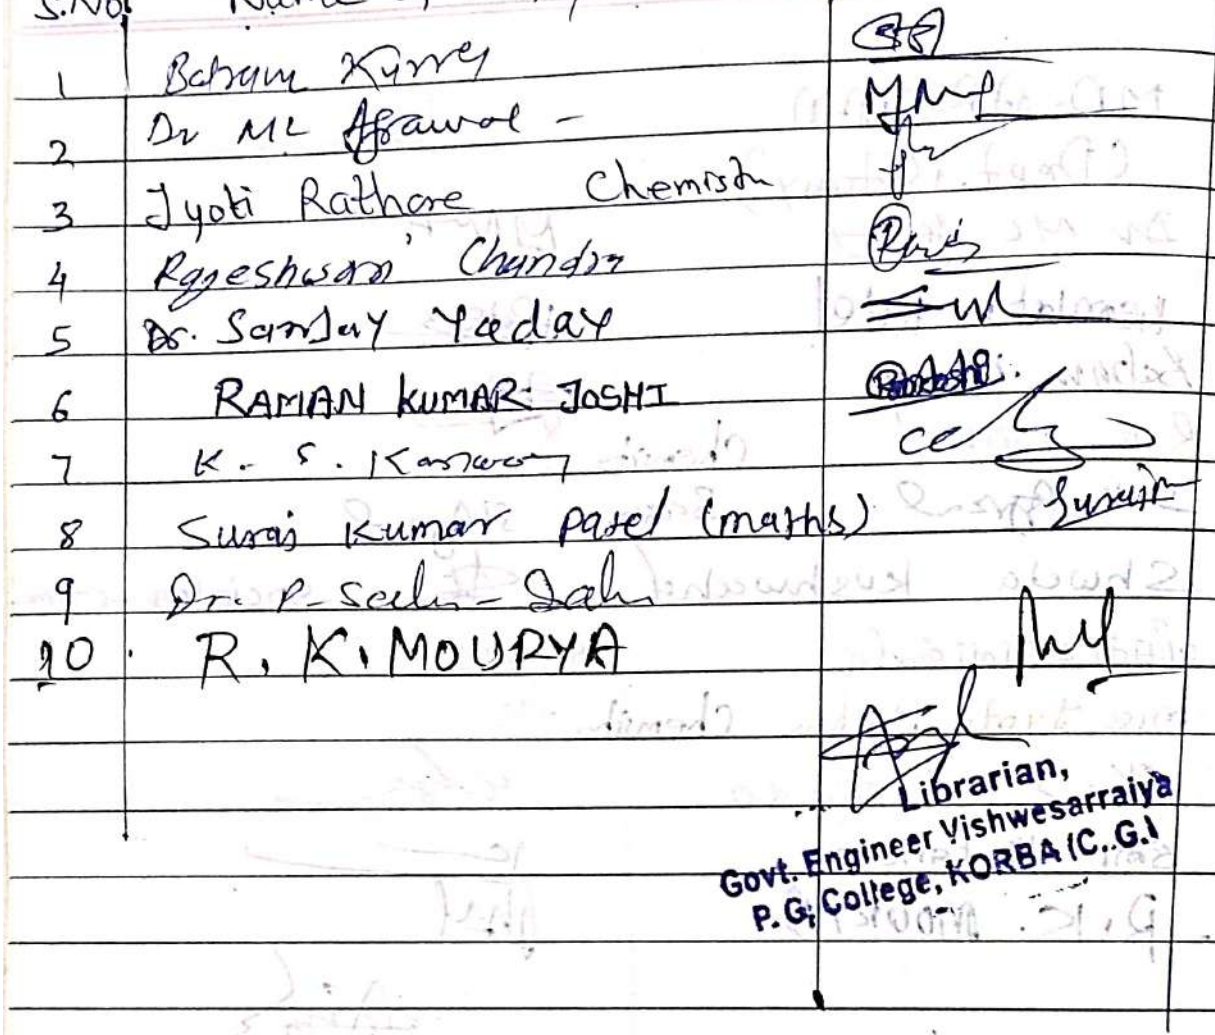 S.No. Name of
1 Balram Kurrey
2 Dr ML Agrawal -
3 Jyoti Rathore Chemistr
4 Rajeshwari Chandra
5 Dr. Sanjay Yadav
6 RAMAN KUMAR JOSHI
7 K. S. Kanwar
8 Suraj Kumar Patel (maths)
9 Dr. P. Sahu
10 R. K. MOURYA
Librarian,
Govt. Engineer Vishwesarraiya
P. G. College, KORBA (C..G.)